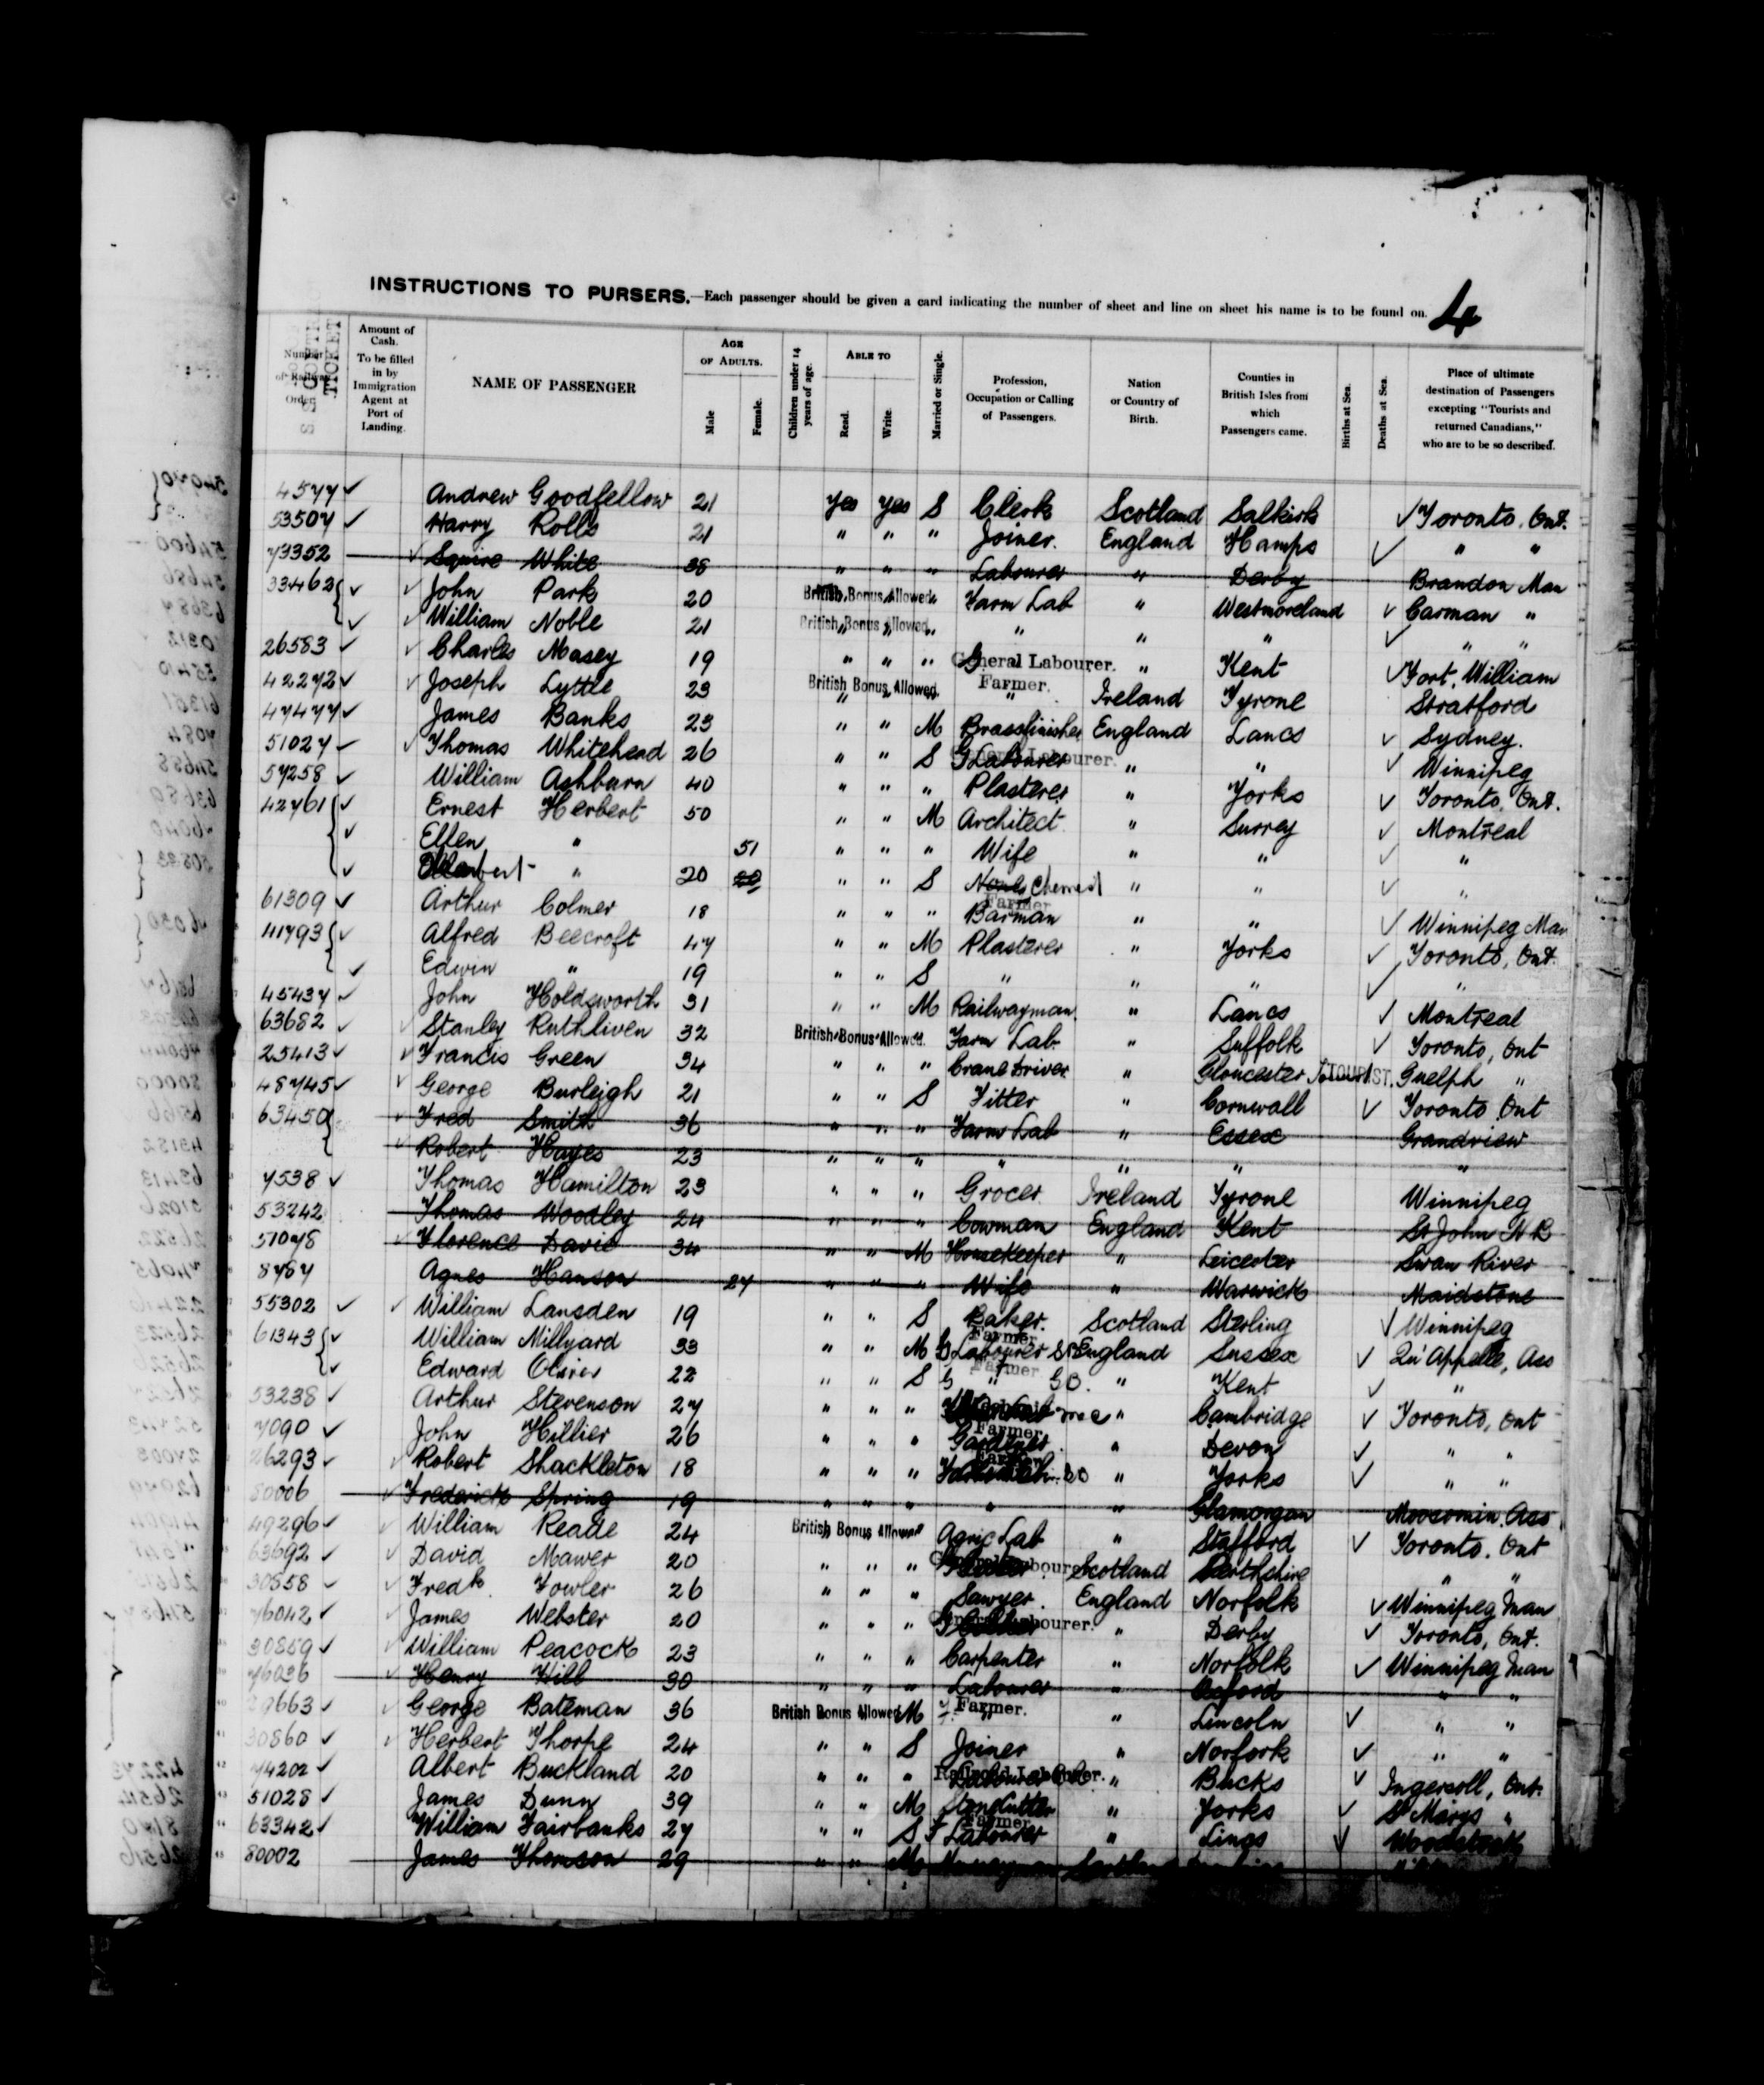 INSTRUCTIONS TO PURSERS.—Each passenger should be given a card indicating the number of sheet and line on sheet his name is to be found on. 4
Number of Railway Order. TICKET
Amount of Cash. To be filled in by Immigration Agent at Port of Landing.
NAME OF PASSENGER
AGE OF ADULTS. Male Female.
Children under 14 years of age.
ABLE TO Read. Write.
Married or Single.
Profession, Occupation or Calling of Passengers.
Nation or Country of Birth.
Counties in British Isles from which Passengers came.
Births at Sea.
Deaths at Sea.
Place of ultimate destination of Passengers excepting "Tourists and returned Canadians," who are to be so described.
4577 ✓ Andrew Goodfellow 21 Yes Yes S Clerk Scotland Salkirk ✓ Toronto, Ont.
53507 ✓ Harry Rolls 21 " " " Joiner. England Hamps ✓ " "
73352 ✓ Squire White 38 " " " Labourer " Derby Brandon Man
33462 { ✓ ✓ John Park 20 British Bonus Allowed Farm Lab " Westmoreland ✓ Carman "
✓ ✓ William Noble 21 British Bonus Allowed " " " ✓ " "
26583 ✓ ✓ Charles Masey 19 " " " General Labourer. " Kent ✓ Fort William
42272 ✓ ✓ Joseph Lyttle 23 British Bonus Allowed. Farmer. Ireland Tyrone Stratford
47477 ✓ James Banks 23 " " M Brassfinisher England Lancs ✓ Sydney.
51027 ✓ ✓ Thomas Whitehead 26 " " S G Labourer " " ✓ Winnipeg
57258 ✓ William Ashburn 40 " " " Plasterer " Yorks ✓ Toronto, Ont.
42761 { ✓ Ernest Herbert 50 " " M Architect " Surrey ✓ Montreal
✓ Ellen " 51 " " " Wife " " ✓ "
✓ " 20 20 " " S None Chemist " " ✓ "
61309 ✓ Arthur Colmer 18 " " " Farmer Barman " " ✓ Winnipeg Man
41793 { ✓ Alfred Beecroft 47 " " M Plasterer " Yorks ✓ Toronto, Ont.
✓ Edwin " 19 " " S " " " ✓ "
45437 ✓ John Holdsworth 31 " " M Railwayman. " Lancs ✓ Montreal
63682 ✓ Stanley Ruthliven 32 British Bonus Allowed. Farm Lab " Suffolk ✓ Toronto, Ont
25413 ✓ ✓ Francis Green 34 " " " Crane Driver " Gloucester TOURIST. Guelph "
48745 ✓ ✓ George Burleigh 21 " " S Fitter " Cornwall ✓ Toronto Ont
63450 { ✓ Fred Smith 36 " " " Farm Lab " Essex Grandview
✓ Robert Hayes 23 " " " " " " "
7538 ✓ Thomas Hamilton 23 " " " Grocer Ireland Tyrone Winnipeg
53242 Thomas Woodley 24 " " " Cowman England Kent St John N B
57078 ✓ Florence Davie 34 " " M Homekeeper " Leicester Swan River
8787 Agnes Hanson 27 " " " Wife " Warwick Maidstone
55302 ✓ ✓ William Lansden 19 " " S Baker. Scotland Sterling ✓ Winnipeg
61343 { ✓ William Millyard 33 " " M G Labourer Farmer England Sussex ✓ Qu'Appelle, Ass
✓ Edward Oliver 22 " " S G " Farmer " Kent ✓ "
53238 ✓ Arthur Stevenson 27 " " " " Cambridge ✓ Toronto, Ont
7090 ✓ John Hillier 26 " " " Gardener Farmer " Devon ✓ " "
26293 ✓ Robert Shackleton 18 " " " " Yorks ✓ " "
80006 ✓ Frederick Spring 19 " " " " " Glamorgan Moosomin, Ass
49296 ✓ William Reade 24 British Bonus Allowed Agric Lab " Stafford ✓ Toronto. Ont
63692 ✓ ✓ David Mawer 20 " " " Scotland Perthshire " "
30858 ✓ ✓ Fredk. Fowler 26 " " " Sawyer. England Norfolk ✓ Winnipeg Man
76042 ✓ James Webster 20 " " " General Labourer. " Derby ✓ Toronto, Ont.
30859 ✓ ✓ William Peacock 23 " " " Carpenter " Norfolk ✓ Winnipeg Man
76036 ✓ Henry Hill 30 " " " Labourer " Oxford " "
✓ ✓ George Bateman 36 British Bonus Allowed M Farmer. " Lincoln ✓ " "
30860 ✓ ✓ Herbert Thorpe 24 " " S Joiner " Norfork ✓ " "
74202 ✓ Albert Buckland 20 " " " Railroad Labourer. " Bucks ✓ Ingersoll, Ont.
51028 ✓ James Dunn 39 " " M Stone Cutter " Yorks ✓ St Marys "
63342 ✓ William Fairbanks 27 " " S F Labourer Farmer " Lings ✓ Woodstock
80002 James Thomson 29 " " M